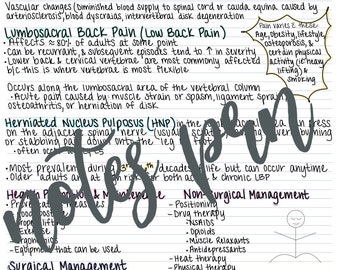 Vascular changes (Diminished blood supply to spinal cord or cauda equina caused by
arteriosclerosis, blood dyscrasias, intervertebral disk degeneration
Lumbosacral Back Pain (Low Back Pain)
• Affects ≈ 80% of adults at some point
• Can be recurrant, & subsequent episodes tend to ↑ in severity
• Lower back & cervical vertebrae are most commonly affected
b/c this is where vertebrae is most flexible
Pain varies c these:
Age, obesity, lifestyle,
osteoporosis, &
certain physical
activity (ie heavy
lifting) &
smoking
Occurs along the lumbosacral area of the vertebral column
• Acute pain caused by muscle strain or spasm, ligament sprain,
osteoarthritis, or herniation of disk
Herniated Nucleus Pulposus (HNP) in the area can press
on the adjacent spinal nerve (usually burning
or stabbing down into the leg
• often
• Most prevalent during decades of life but can occur anytime
• Older adults are at risk for both acute & chronic LBP
Health Promotion & Maintenance
Non-Surgical Management
- Good
- Exercise
- Equipment that can be used
Surgical Management
- Positioning
- Drug therapy
↳ NSAIDs
↳ Opioids
↳ Muscle Relaxants
↳ Antidepressants
- Heat therapy
- Physical therapy
notes pen